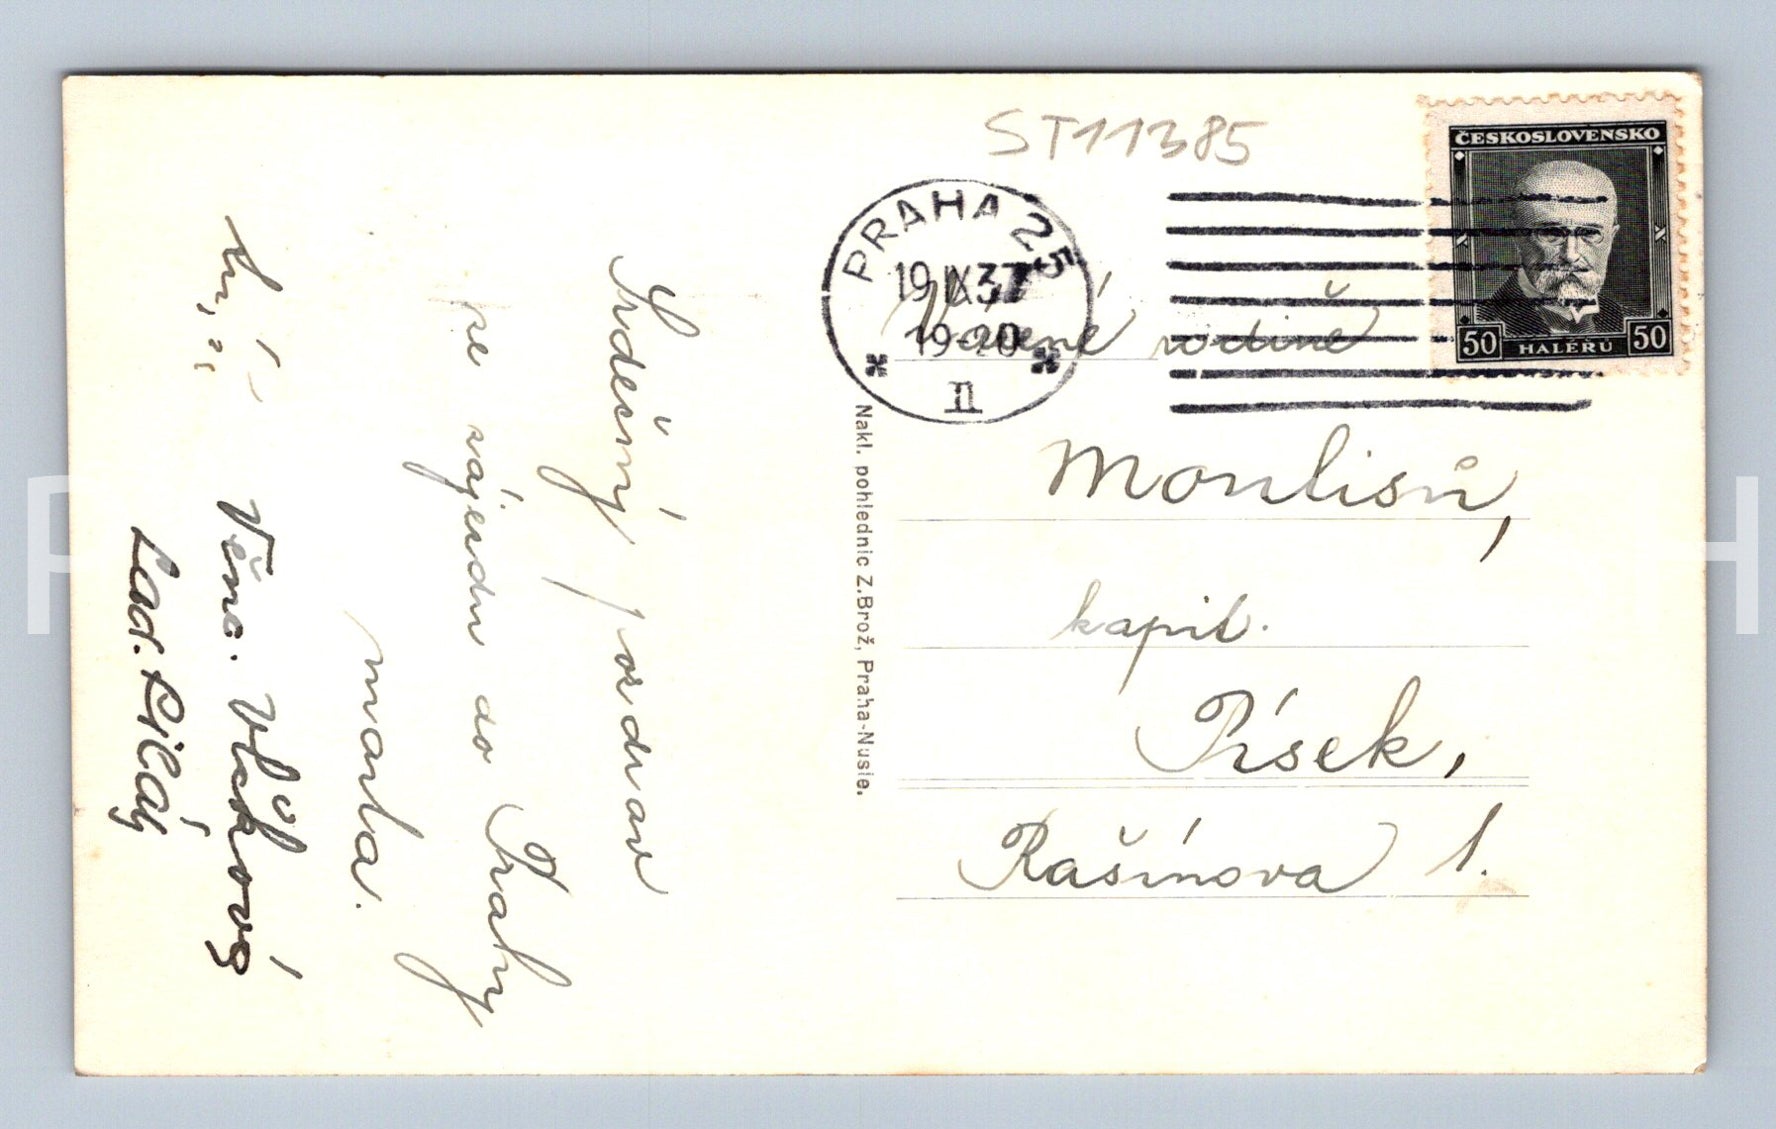 ST11385
ČESKOSLOVENSKO
50 HALÉRŮ 50
PRAHA 25
19.IX.37
19-20
II
Vážené rodině
kapit.
Písek,
Rašínova 1.
Nakl. pohlednic Z.Brož, Praha-Nusle.
Srdečný pozdrav
ze zájezdu do Prahy
Věna. Vlčková
Lad.